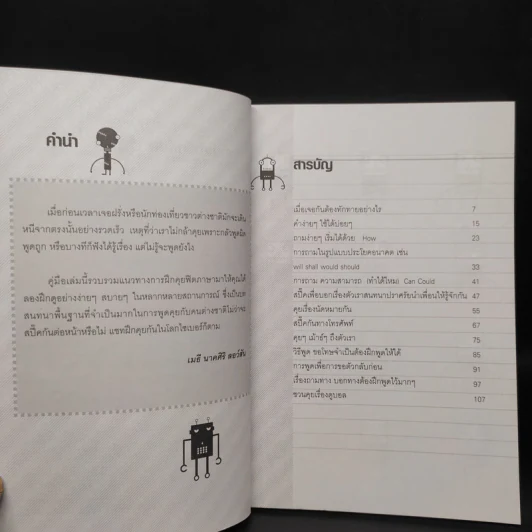 คำนำ
เมื่อก่อนเวลาเจอฝรั่งหรือนักท่องเที่ยวชาวต่างชาติมักจะเดิน
หนีจากตรงนั้นอย่างรวดเร็ว เหตุที่ว่าเราไม่กล้าคุยเพราะกลัวพูดผิด
พูดถูก หรือบางทีก็ฟังได้รู้เรื่อง แต่ไม่รู้จะพูดยังไง
คู่มือเล่มนี้รวบรวมแนวทางการฝึกคุยฟิตภาษามาให้คุณได้
ลองฝึกดูอย่างง่ายๆ สบายๆ ในหลากหลายสถานการณ์ ซึ่งเป็นบท
สนทนาพื้นฐานที่จำเป็นมากในการพูดคุยกับคนต่างชาติไม่ว่าจะ
สปี๊คกันต่อหน้าหรือไม่ แชทฝึกคุยกันในโลกไซเบอร์ก็ตาม
เมธี นาคศิริ
สารบัญ
เมื่อเจอกันต้องทักทายอย่างไร 7
คำง่ายๆ ใช้ได้บ่อยๆ 15
ถามง่ายๆ เริ่มได้ด้วย How 23
การถามในรูปแบบประโยคอนาคต เช่น
will shall would should 33
การถาม ความสามารถ (ทำได้ไหม) Can Could 41
สปี๊คเพื่อบอกเรื่องตัวเราสนทนาปราศรัยนำเพื่อนให้รู้จักกัน 47
คุยเรื่องนัดหมายกัน 55
สปี๊คกันทางโทรศัพท์ 67
คุยๆ เม้าธ์ๆ ถึงตัวเรา 75
วิธีพูด ขอโทษจำเป็นต้องฝึกพูดให้ได้ 85
การพูดเพื่อการขอตัวกลับก่อน 91
เรื่องถามทาง บอกทางต้องฝึกพูดไว้มากๆ 97
ชวนคุยเรื่องดูบอล 107